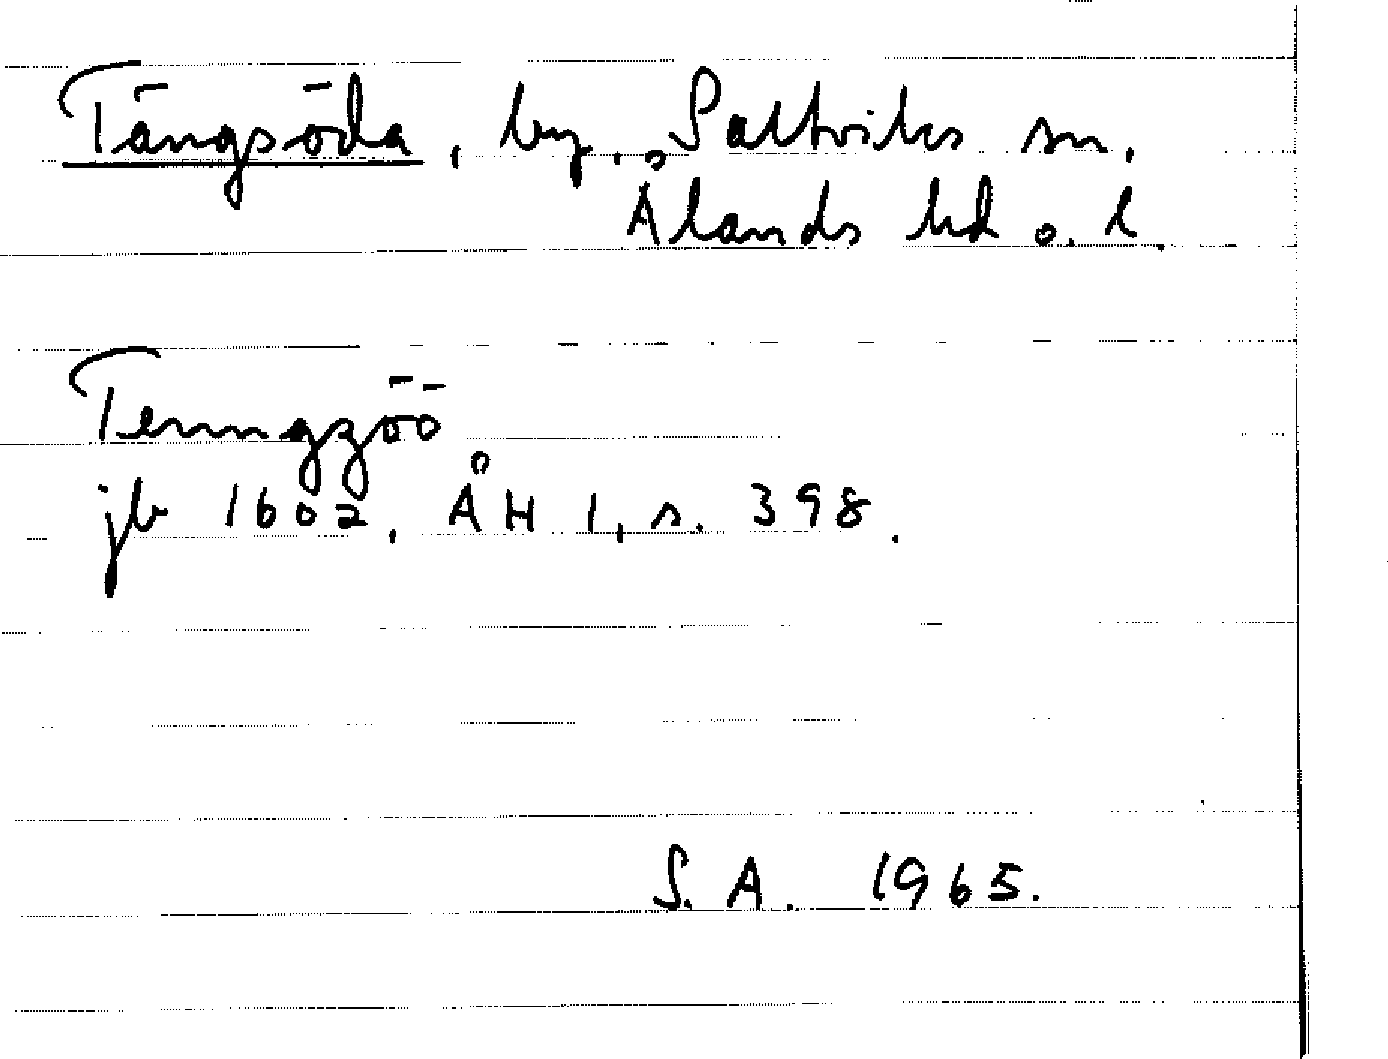 Tängsöda, by, Saltviks sn,
Ålands hd o. l.
Temngzöö
jb 1602, ÅH 1, s. 398.
S. A. 1965.